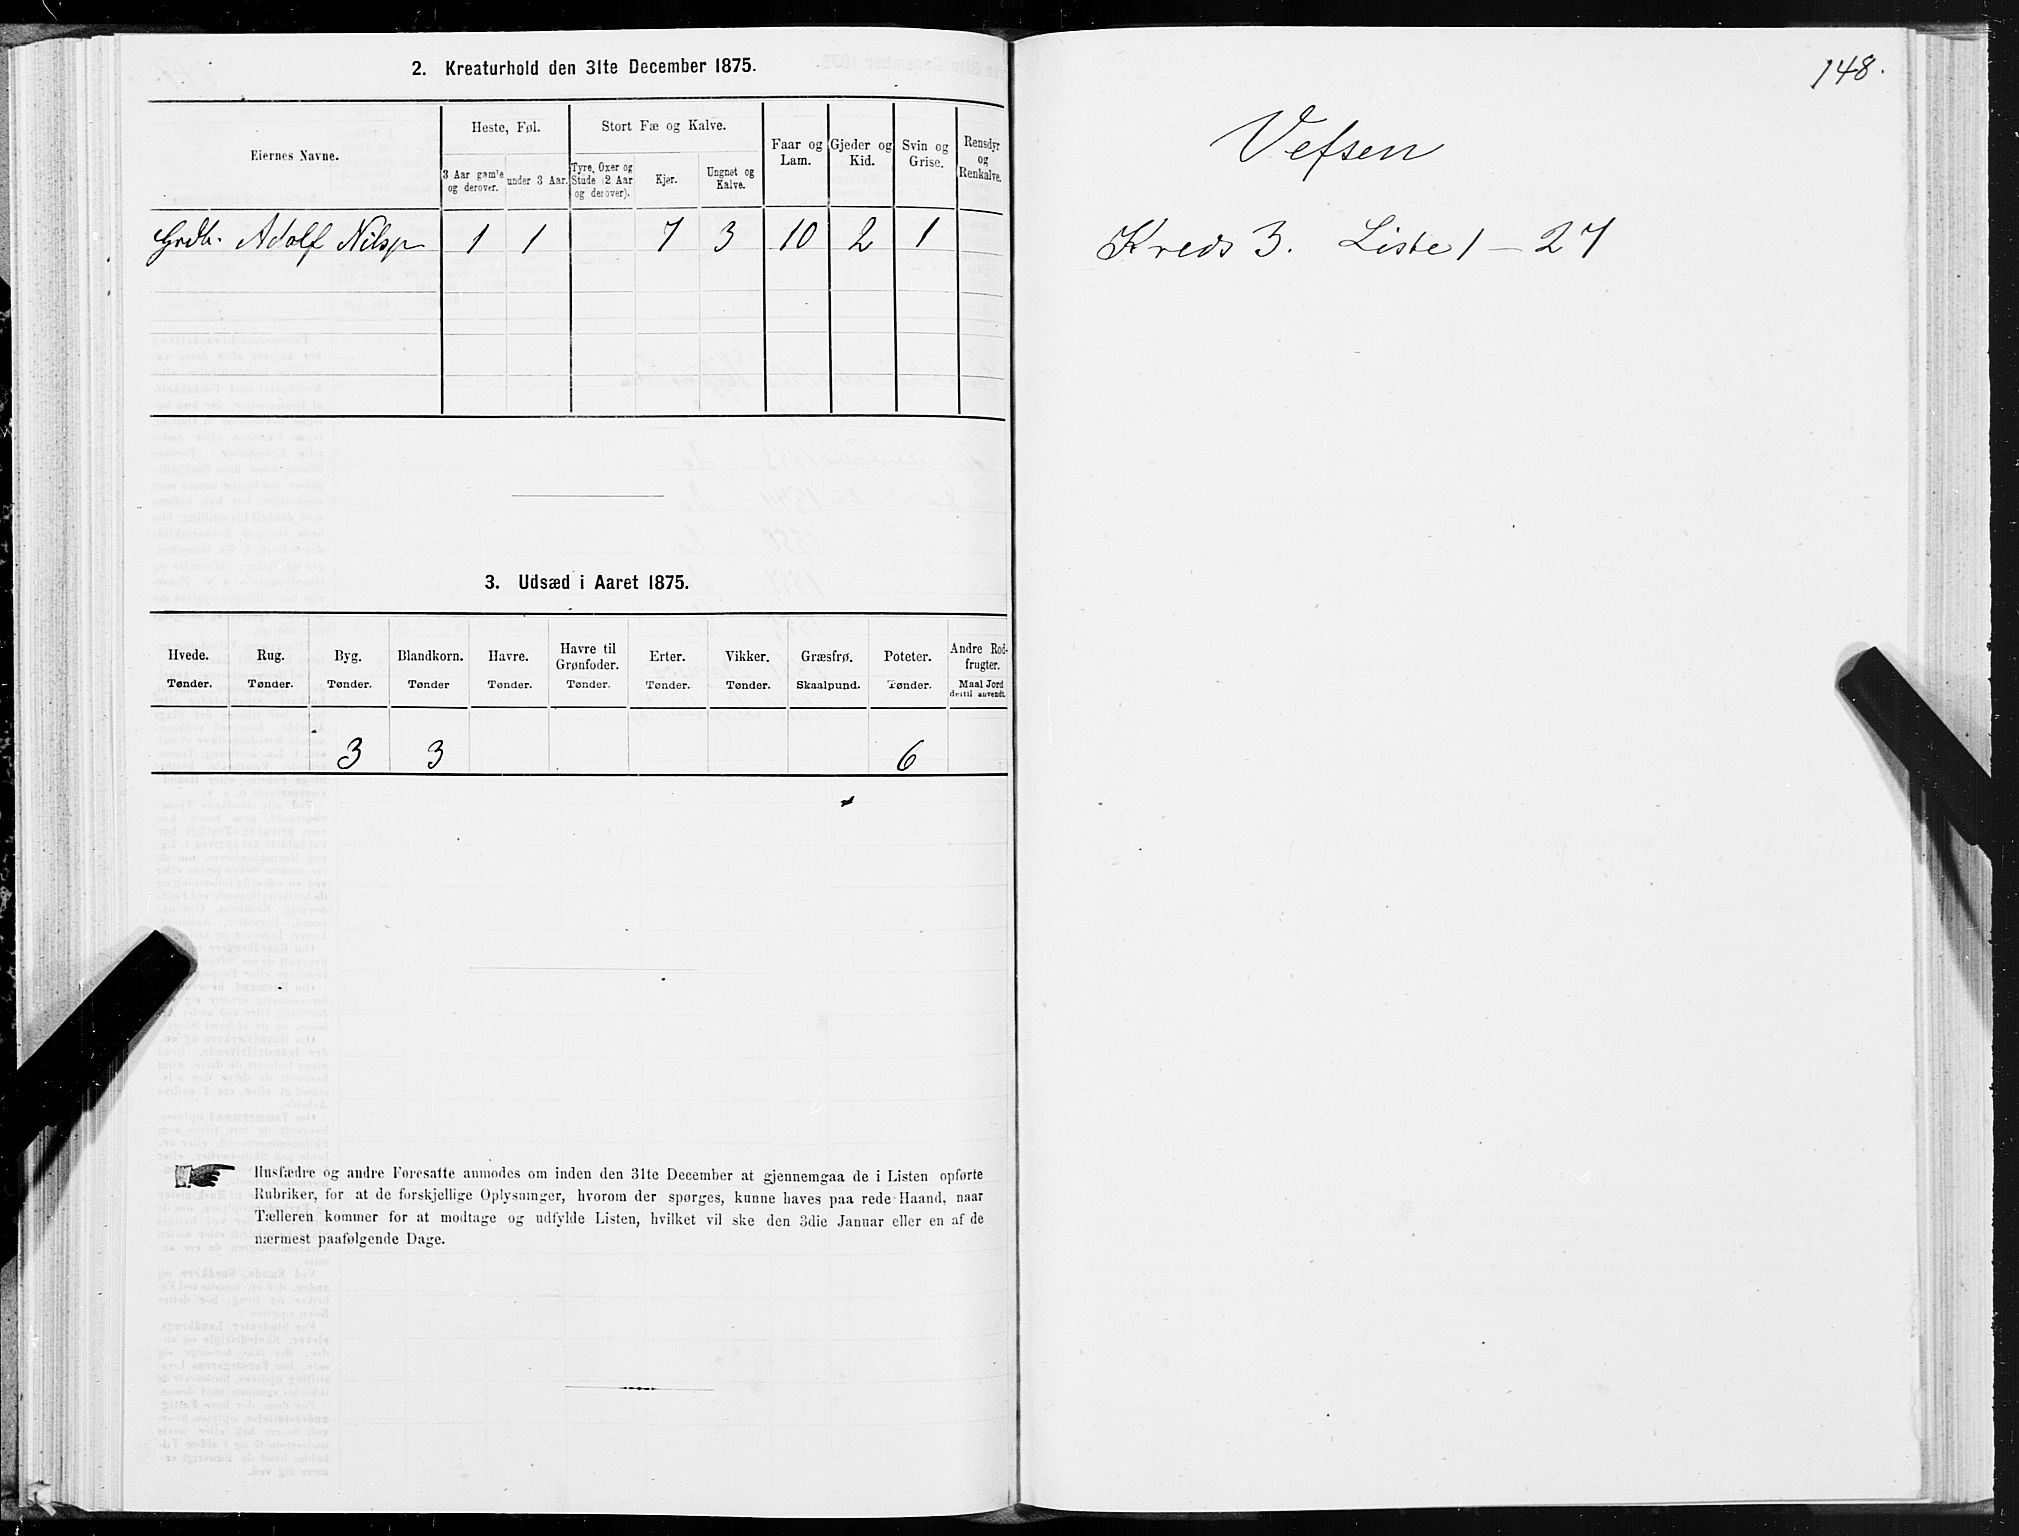 2. Kreaturhold den 31te December 1875.
Eiernes Navne.
Heste, Føl.
Stort Fæ og Kalve.
Faar og Lam.
Gjeder og Kid.
Svin og Grise.
Rensdyr og Renkalve.
3 Aar gamle og derover.
under 3 Aar.
Tyre, Oxer og Stude (2 Aar og derover).
Kjør.
Ungnet og Kalve.
Grdb. Adolf Nilsen 1 1 7 3 10 2 1
3. Udsæd i Aaret 1875.
Hvede. Rug. Byg. Blandkorn. Havre. Havre til Grønfoder. Erter. Vikker. Græsfrø. Poteter. Andre Rodfrugter.
Tønder. Tønder. Tønder. Tønder Tønder. Tønder. Tønder. Tønder. Skaalpund. Tønder. Maal Jord dertil anvendt.
3 3 6
Husfædre og andre Foresatte anmodes om inden den 31te December at gjennemgaa de i Listen opførte
Rubriker, for at de forskjellige Oplysninger, hvorom der spørges, kunne haves paa rede Haand, naar
Tælleren kommer for at modtage og udfylde Listen, hvilket vil ske den 3die Januar eller en af de
nærmest paafølgende Dage.
148.
Vefsen
Kreds 3. Liste 1-27